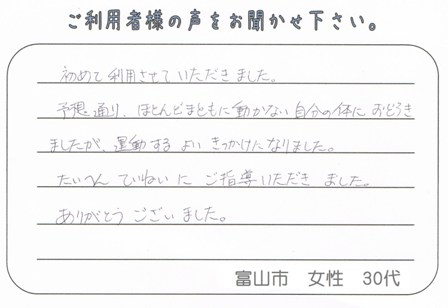 ご利用者様の声をお聞かせ下さい。
初めて利用させていただきました。
予想通り、ほとんどまともに動かない自分の体におどろき
ましたが、運動するよいきっかけになりました。
たいへんていねいにご指導いただきました。
ありがとうございました。
富山市 女性 30代